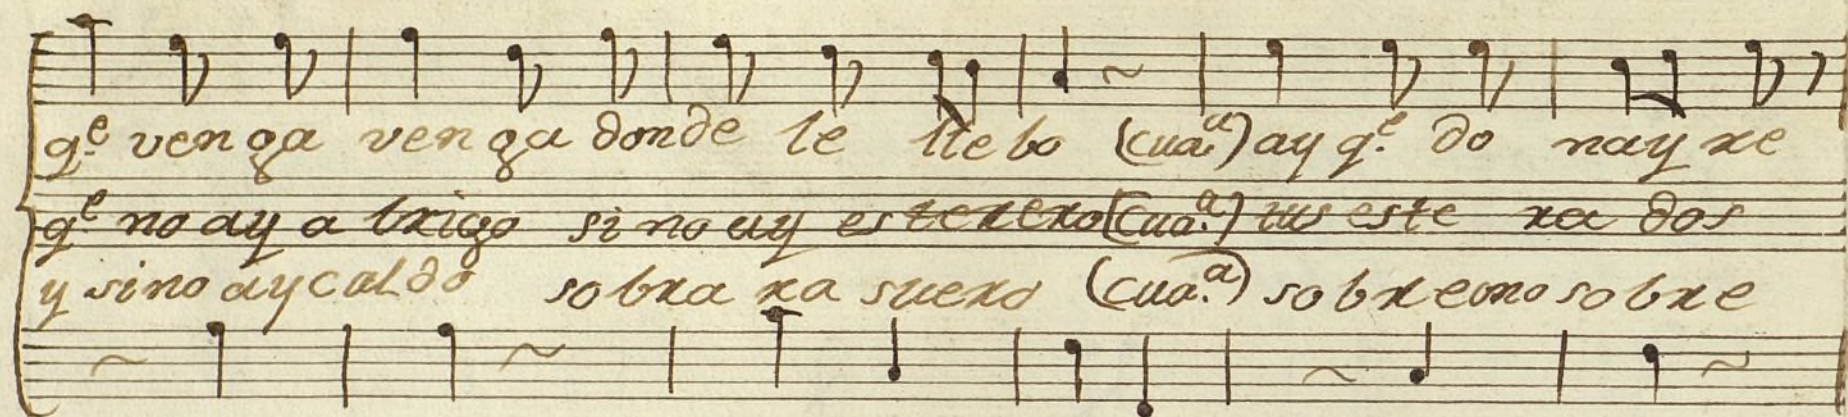 q.e venga venga donde le llebo (cua.a) ay q.e do nayre
q.e no ay abrigo si no ay esterero (cua.a) tus esterados
y si no ay caldo sobrara suero (cua.a) sobre o no sobre